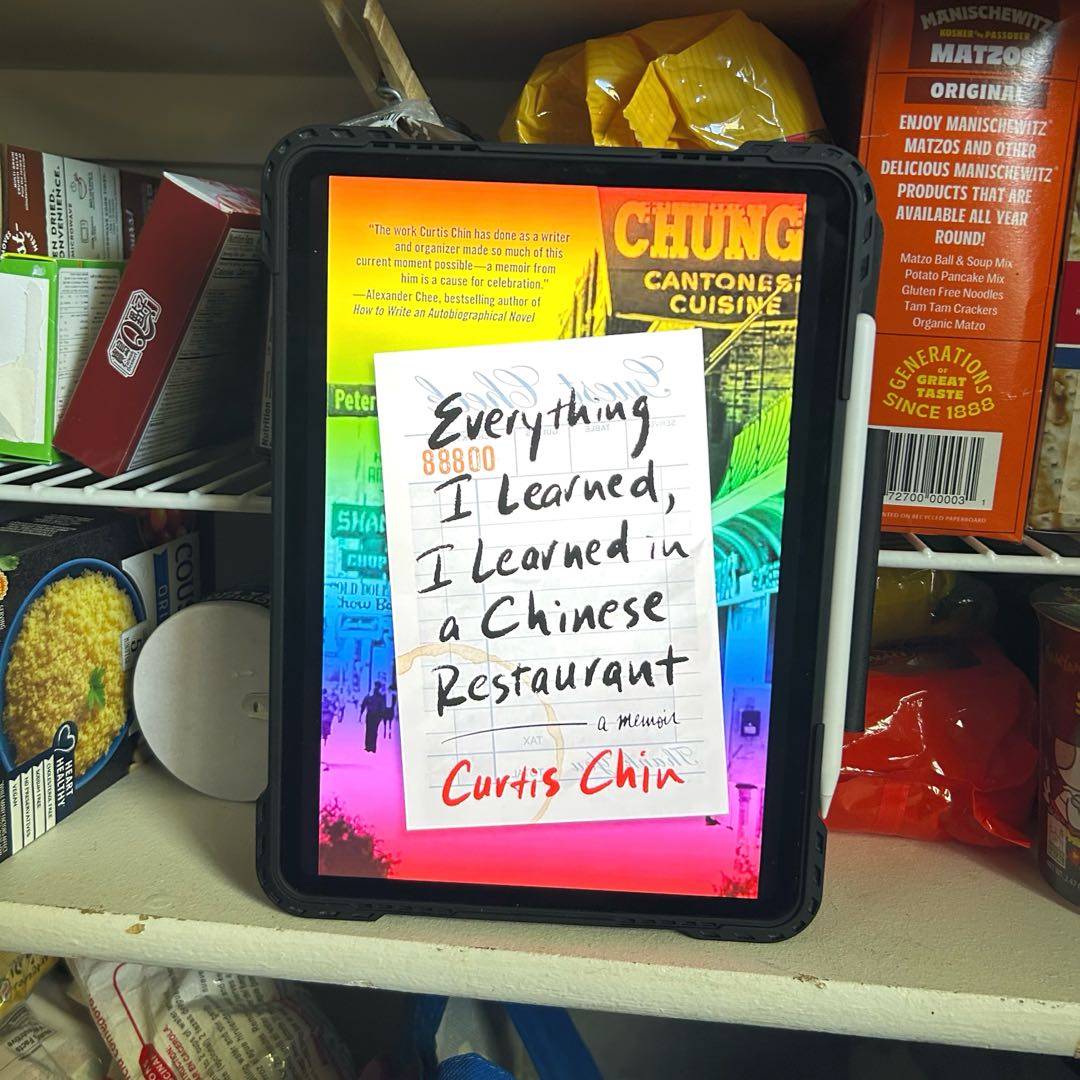 "The work Curtis Chin has done as a writer
and organizer made so much of this
current moment possible—a memoir from
him is a cause for celebration."
—Alexander Chee, bestselling author of
How to Write an Autobiographical Novel
CHUNG
CANTONESE
CUISINE
Peter
Guest Check
Everything
88800
I Learned,
I Learned in
a Chinese
Restaurant
a memoir
TAX
Curtis Chin
Thank You
MANISCHEWITZ
KOSHER FOR PASSOVER
MATZOS
ORIGINAL
ENJOY MANISCHEWITZ
MATZOS AND OTHER
DELICIOUS MANISCHEWITZ
PRODUCTS THAT ARE
AVAILABLE ALL YEAR
ROUND!
Matzo Ball & Soup Mix
Potato Pancake Mix
Gluten Free Noodles
Tam Tam Crackers
Organic Matzo
GENERATIONS
OF
GREAT
TASTE
SINCE 1888
72700 00003 1
PRINTED ON RECYCLED PAPERBOARD
CONVENIENCE.
MICROWAVE
COUS
HEART
HEALTHY
VEGAN